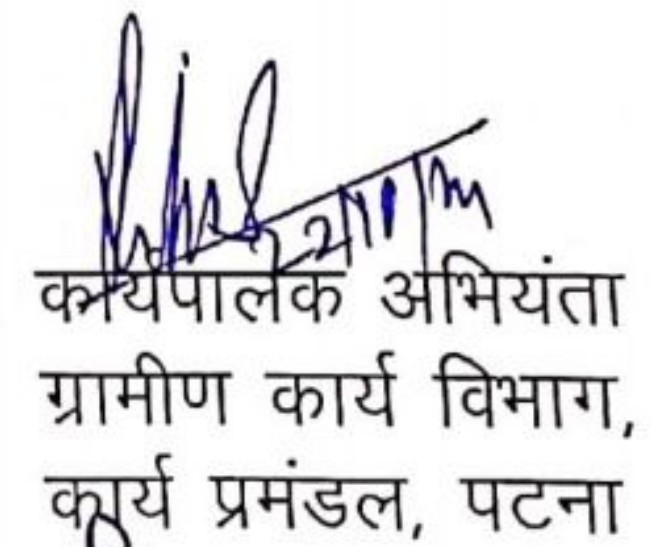 कार्यपालक अभियंता
ग्रामीण कार्य विभाग,
कार्य प्रमंडल, पटना